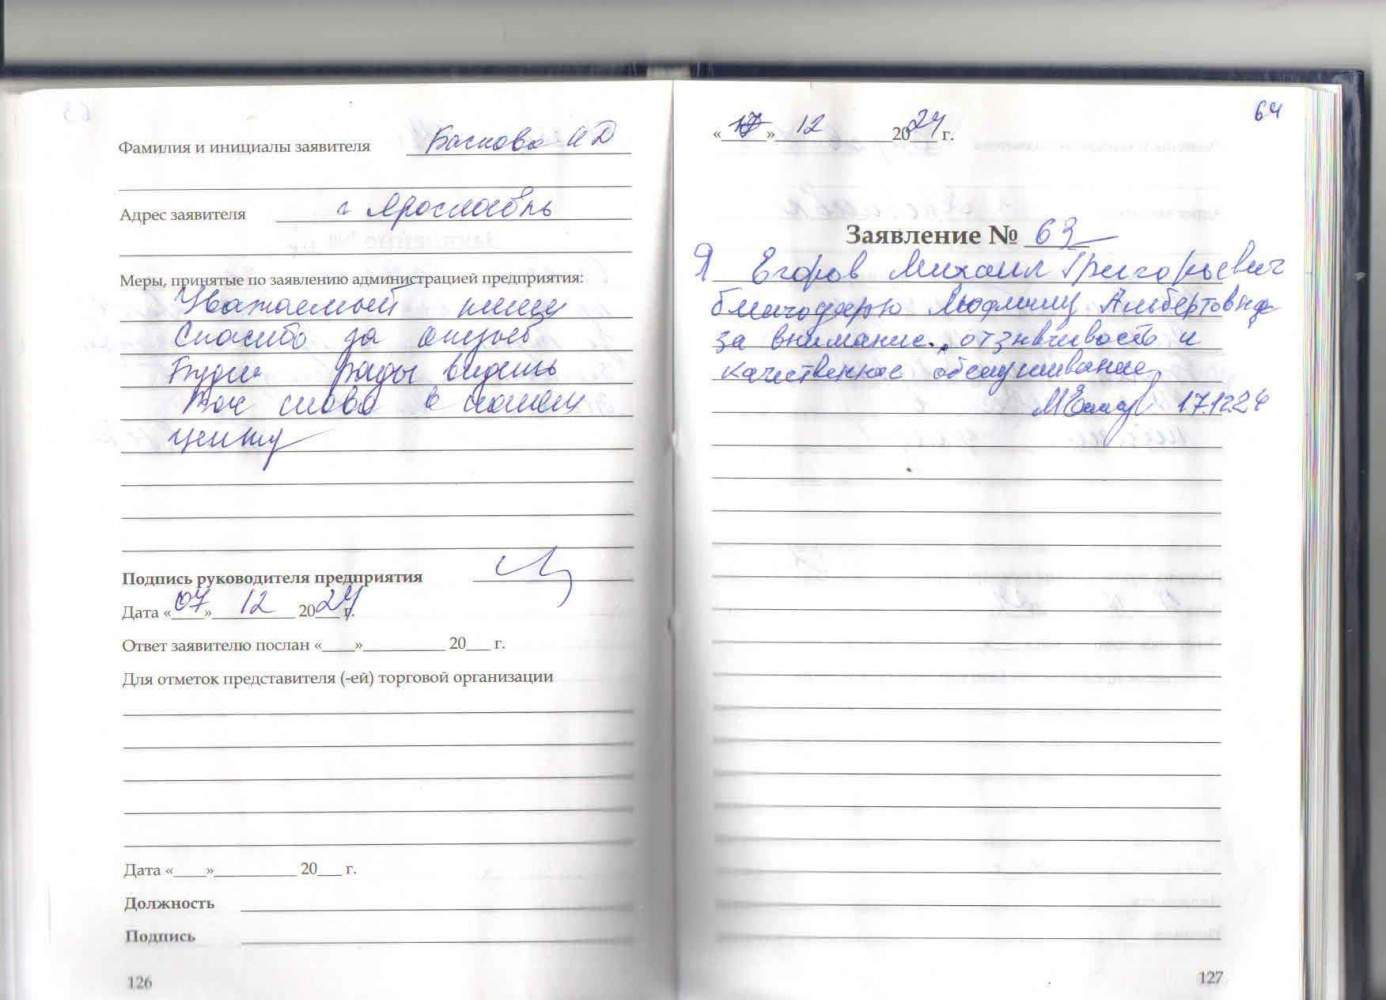 Фамилия и инициалы заявителя Баскова И Д
Адрес заявителя г Ярославль
Меры, принятые по заявлению администрацией предприятия:
Уважаемый
Спасибо за отзыв
Будем рады видеть
Вас снова в нашем
центре
Подпись руководителя предприятия
Дата «07» 12 2024 г.
Ответ заявителю послан «___»__________ 20___ г.
Для отметок представителя (-ей) торговой организации
Дата «____»__________ 20___ г.
Должность
Подпись
126
64
«17» 12 2024 г.
Заявление № 63
Я Егоров Михаил Григорьевич
благодарю Людмилу Альбертовну
за внимание, отзывчивость и
качественное обслуживание
17.12.24
127